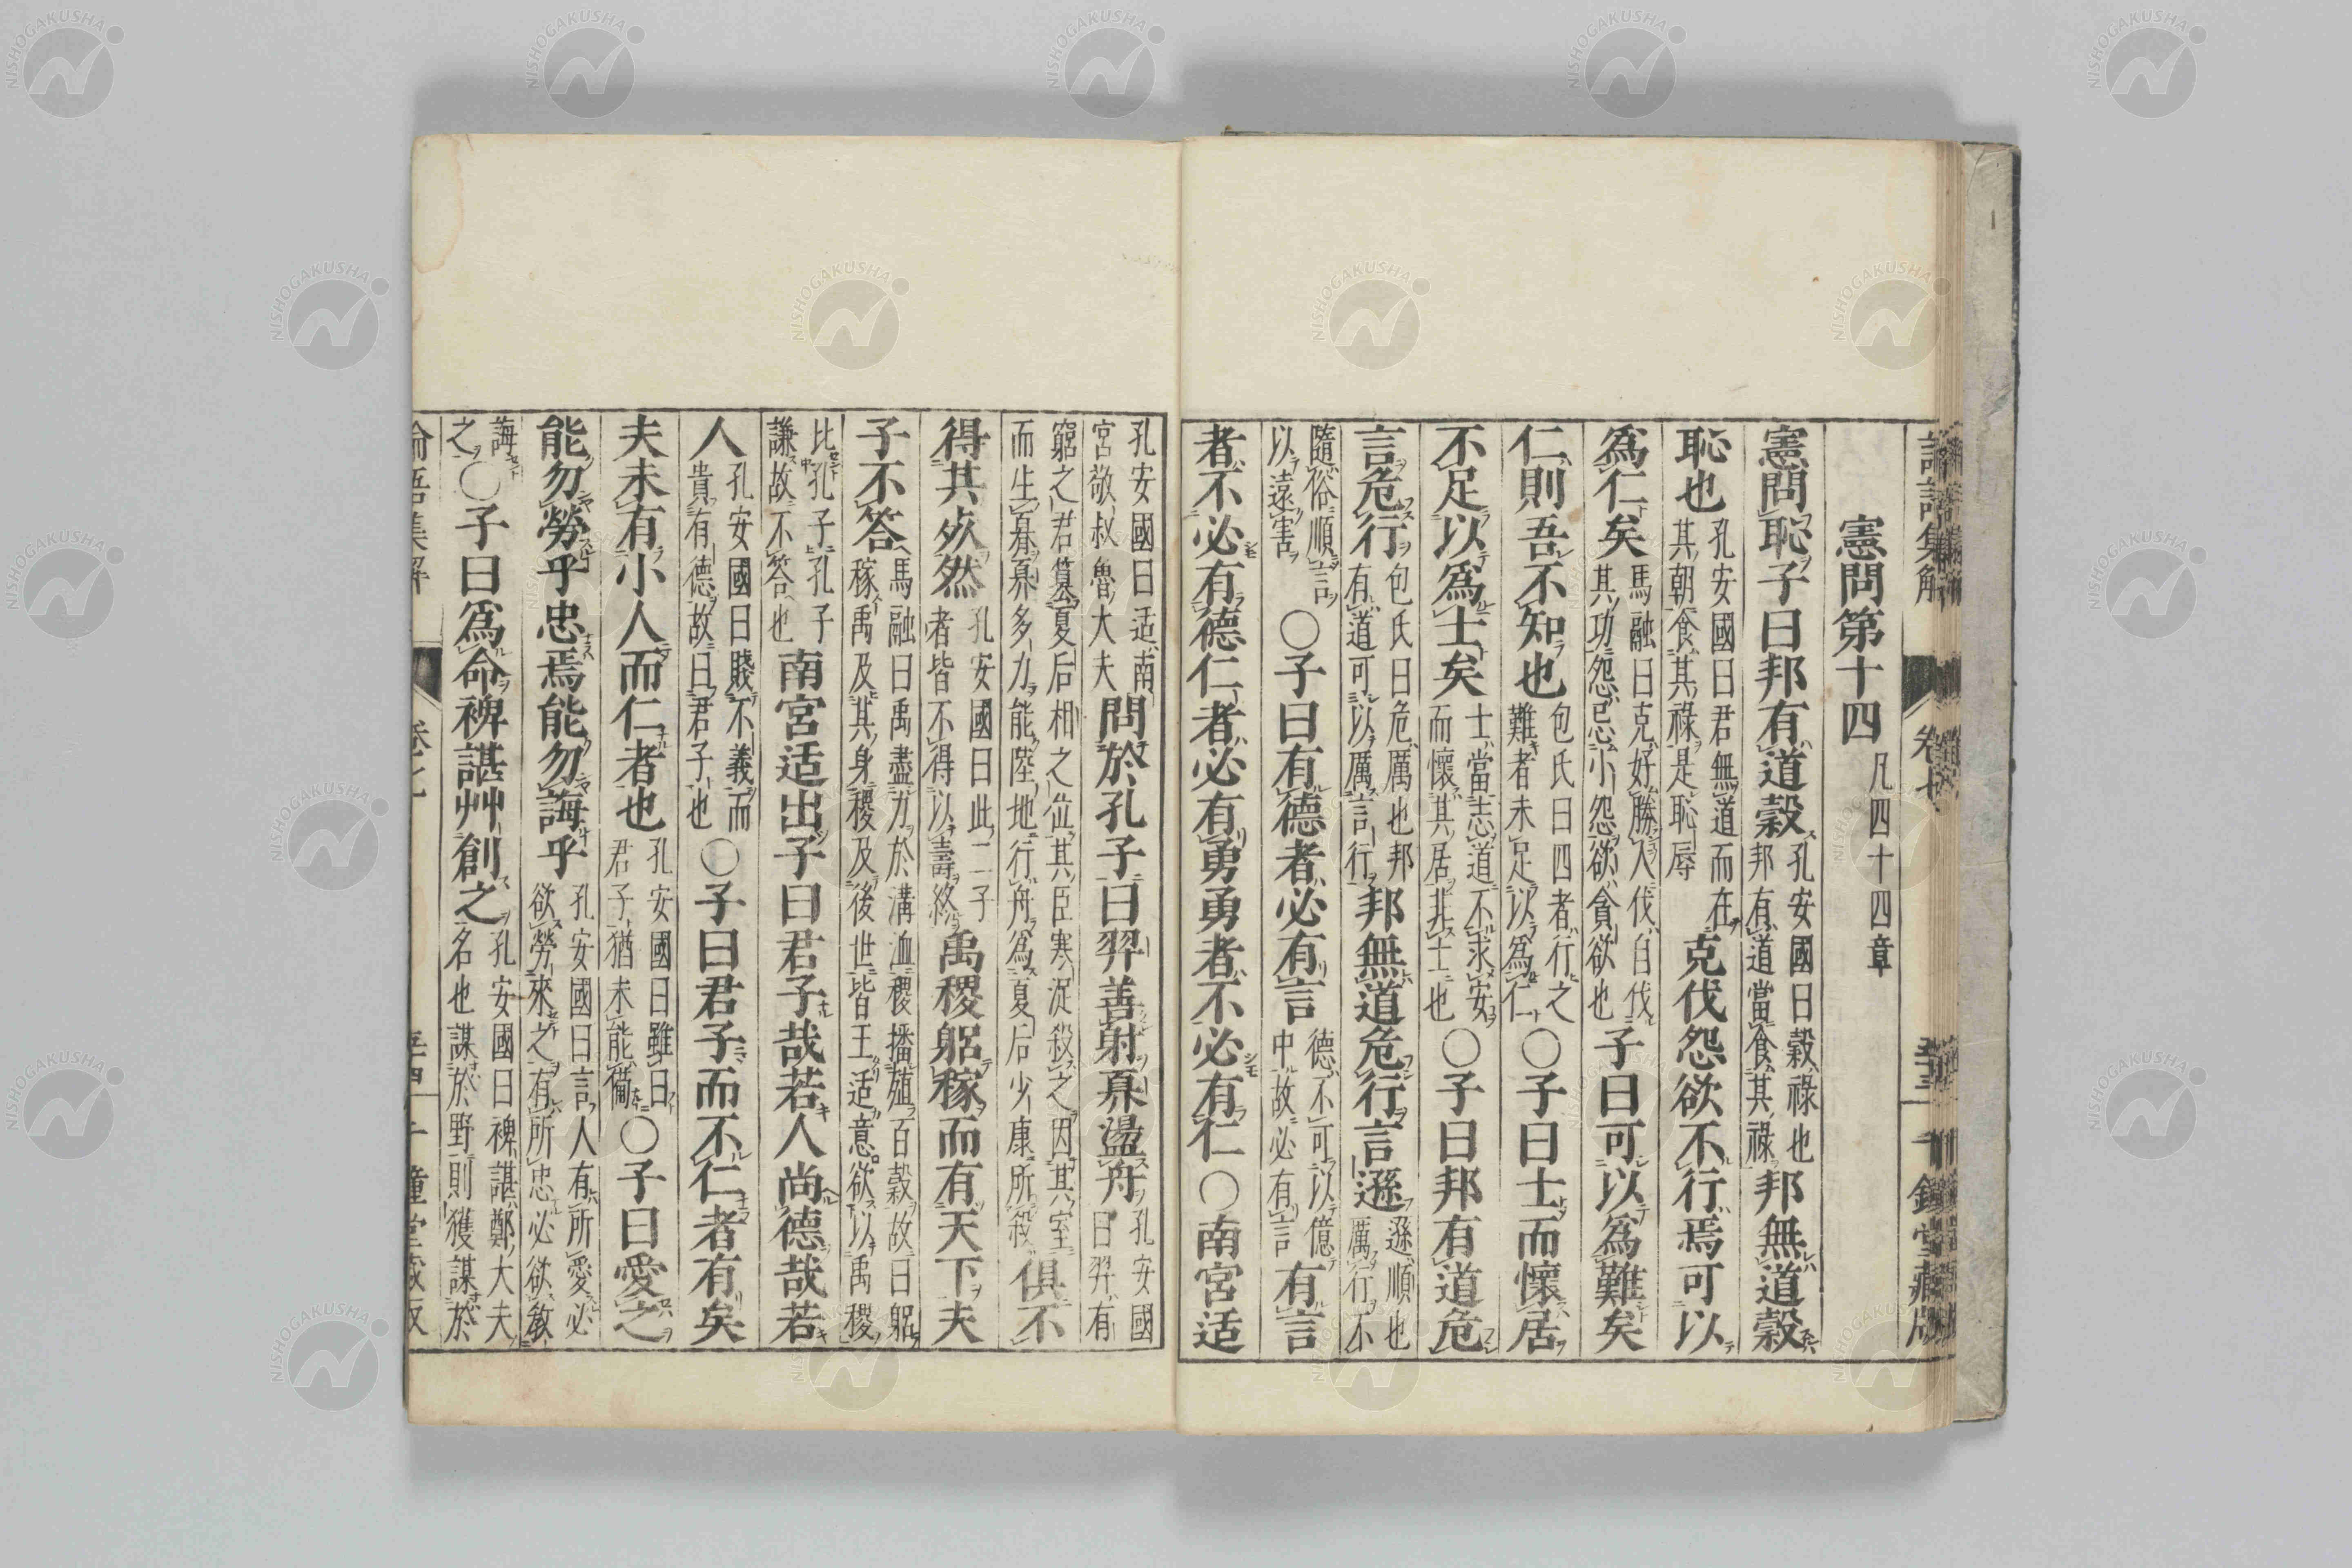 論語集解 卷七 堂藏版
憲問第十四 凡四十四章
憲問恥子曰邦有道穀孔安國曰穀祿也邦有道當食其祿邦無道穀
恥也孔安國曰君無道而在其朝食其祿是恥辱克伐怨欲不行焉可以
爲仁矣馬融曰克好勝人伐自伐其功怨忌小怨欲貪欲也子曰可以爲難矣
仁則吾不知也包氏曰四者行之難者未足以爲仁○子曰士而懷居
不足以爲士矣士當志道不求安而懷其居非士也○子曰邦有道危
言危行包氏曰危厲也邦有道可以厲言行邦無道危行言遜遜順也厲行不
隨俗順言以遠害○子曰有德者必有言德不可以億中故必有言有言
者不必有德仁者必有勇勇者不必有仁○南宮适
孔安國曰适南宮敬叔魯大夫問於孔子曰羿善射奡盪舟孔安國曰羿有
窮之君簒夏后相之位其臣寒浞殺之因其室而生奡奡多力能陸地行舟爲夏后少康所殺俱不
得其死然孔安國曰此二子者皆不得以壽終禹稷躬稼而有天下夫
子不答馬融曰禹盡力於溝洫稷播殖百穀故曰躬稼禹及其身稷及後世皆王适意欲以禹稷
比孔子孔子謙故不答也南宮适出子曰君子哉若人尚德哉若
人孔安國曰賤不義而貴有德故曰君子也○子曰君子而不仁者有矣
夫未有小人而仁者也孔安國曰雖曰君子猶未能備○子曰愛之
能勿勞乎忠焉能勿誨乎孔安國曰言人有所愛必欲勞來之有所忠必欲敎
誨之○子曰爲命裨諶艸創之孔安國曰裨諶鄭大夫名也謀於野則獲謀於
論語集解 卷七 堂藏版